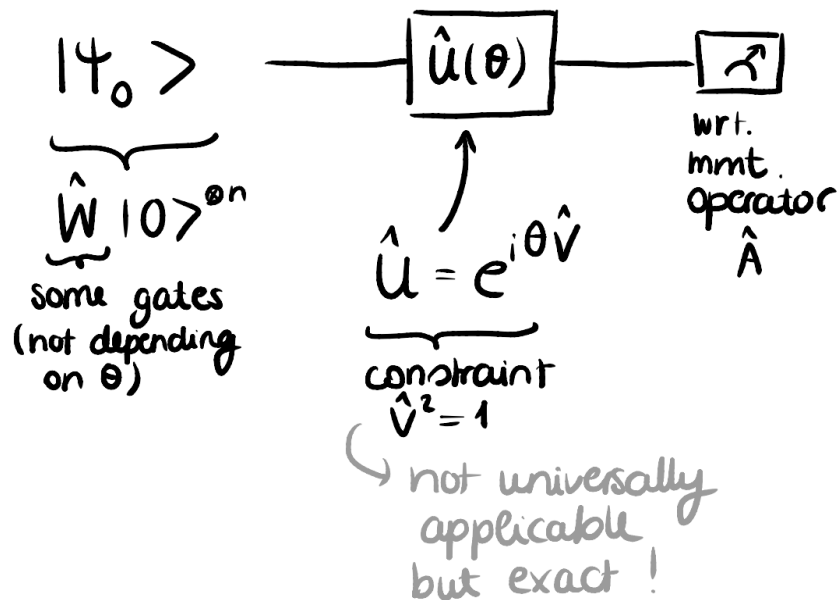 |Ψ₀>
Û(θ)
wrt.
mmt.
operator
Â
Ŵ |0>^⊗n
some gates
(not depending
on θ)
Û = e^iθV̂
constraint
V̂² = 1
not universally
applicable
but exact !